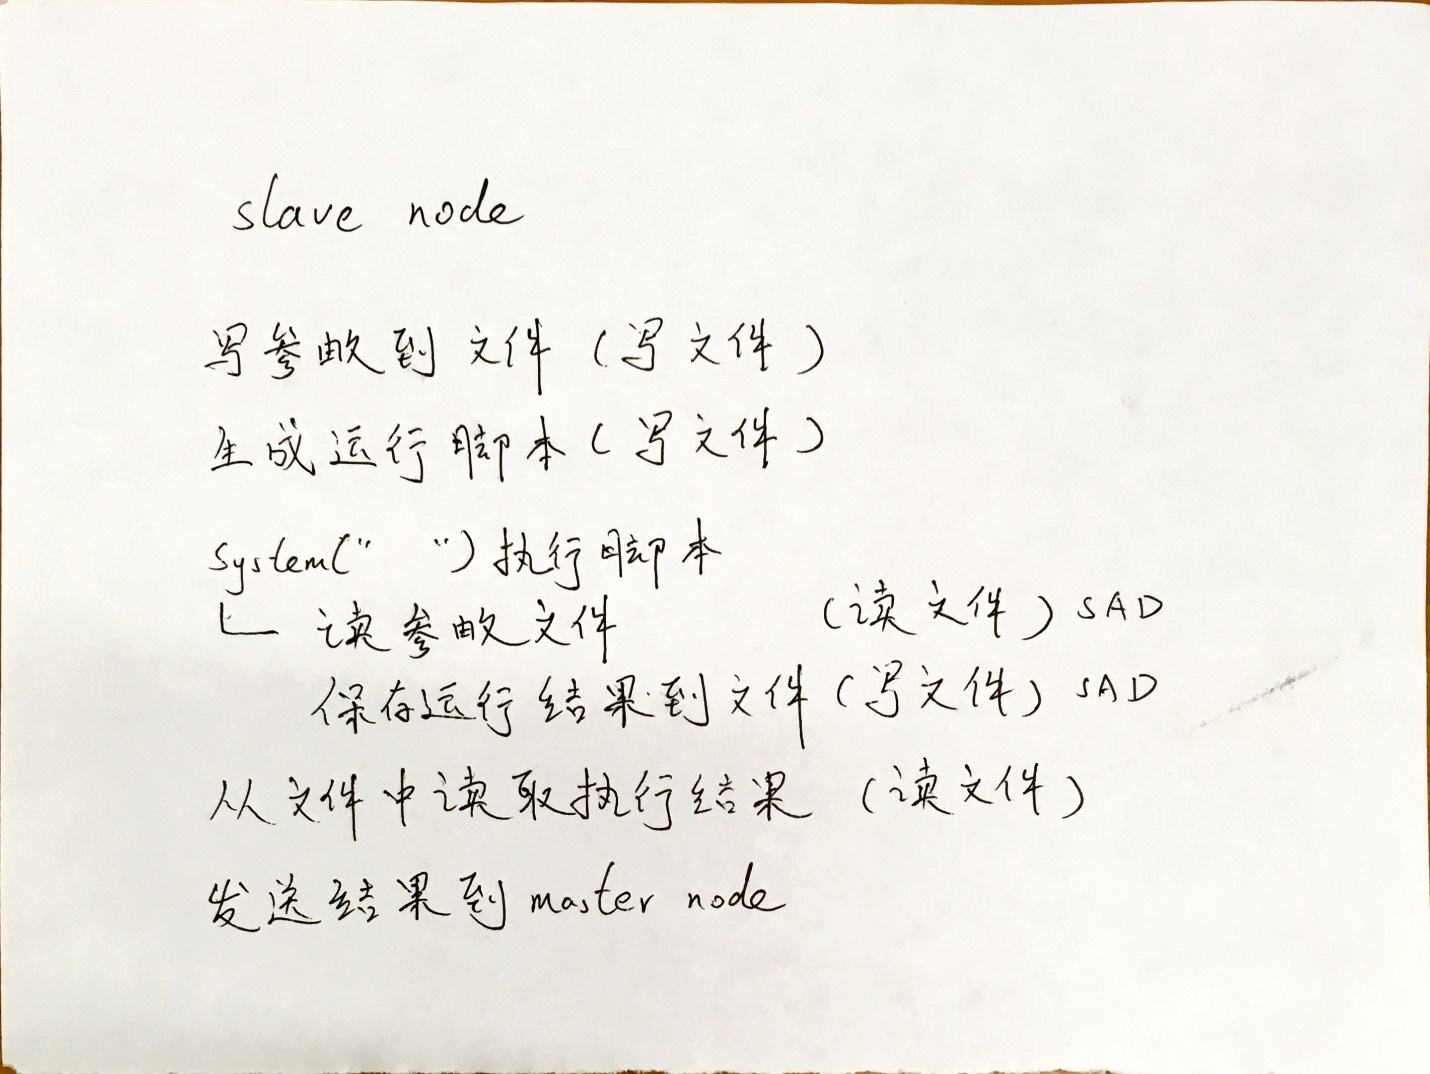 slave node
写参数到文件（写文件）
生成运行脚本（写文件）
system(" ")执行脚本
读参数文件 （读文件）SAD
保存运行结果到文件（写文件）SAD
从文件中读取执行结果 （读文件）
发送结果到master node